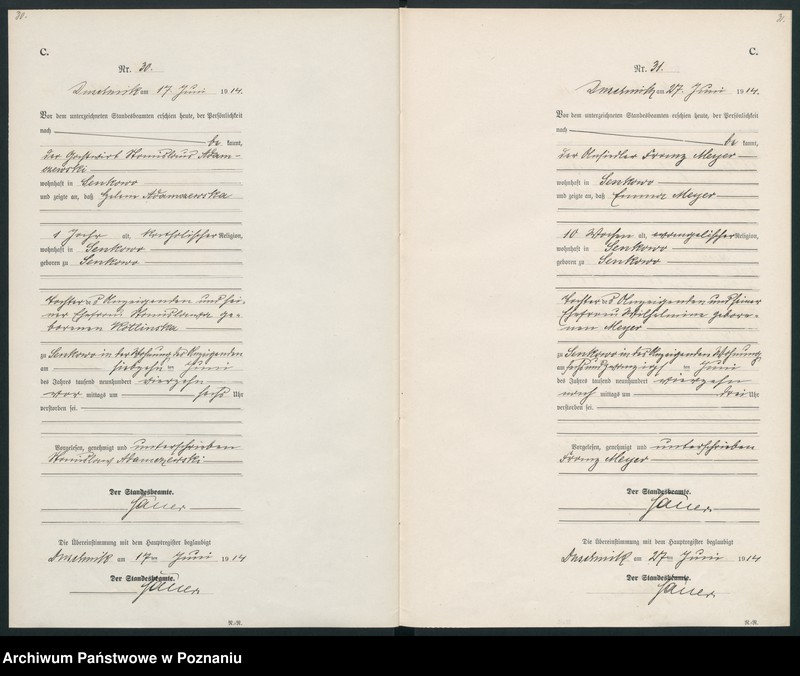 30.
C.
Nr. 30.
am 17. Juni 1914.
Vor dem unterzeichneten Standesbeamten erschien heute, der Persönlichkeit
nach
be kannt,
der Gastwirt Stanislaus Adam-
czewski
wohnhaft in Senkowo
und zeigte an, daß Helene Adamczewska
1 Jahr alt, katholischer Religion,
wohnhaft in Senkowo
geboren zu Senkowo
Tochter des Anzeigenden und sei-
ner Ehefrau Stanislawa ge-
borenen
zu Senkowo in der Wohnung des Anzeigenden
am siebzehn ten Juni
des Jahres tausend neunhundert vierzehn
vor mittags um sechs Uhr
verstorben sei.
Vorgelesen, genehmigt und unterschrieben
Stanislaus Adamczewski
Der Standesbeamte.
Die Übereinstimmung mit dem Hauptregister beglaubigt
am 17ten Juni 1914
Der Standesbeamte.
R./R.
31.
C.
Nr. 31.
am 27. Juni 1914.
Vor dem unterzeichneten Standesbeamten erschien heute, der Persönlichkeit
nach
be kannt,
der Ansiedler Franz Meyer
wohnhaft in Senkowo
und zeigte an, daß Emma Meyer
10 Wochen alt, evangelischer Religion,
wohnhaft in Senkowo
geboren zu Senkowo
Tochter des Anzeigenden und seiner
Ehefrau Wilhelmine gebore-
nen Meyer
zu Senkowo in des Anzeigenden Wohnung
am sechsundzwanzigsten Juni
des Jahres tausend neunhundert vierzehn
nach mittags um drei Uhr
verstorben sei.
Vorgelesen, genehmigt und unterschrieben
Franz Meyer
Der Standesbeamte.
Die Übereinstimmung mit dem Hauptregister beglaubigt
am 27ten Juni 1914
Der Standesbeamte.
R./R.
Archiwum Państwowe w Poznaniu